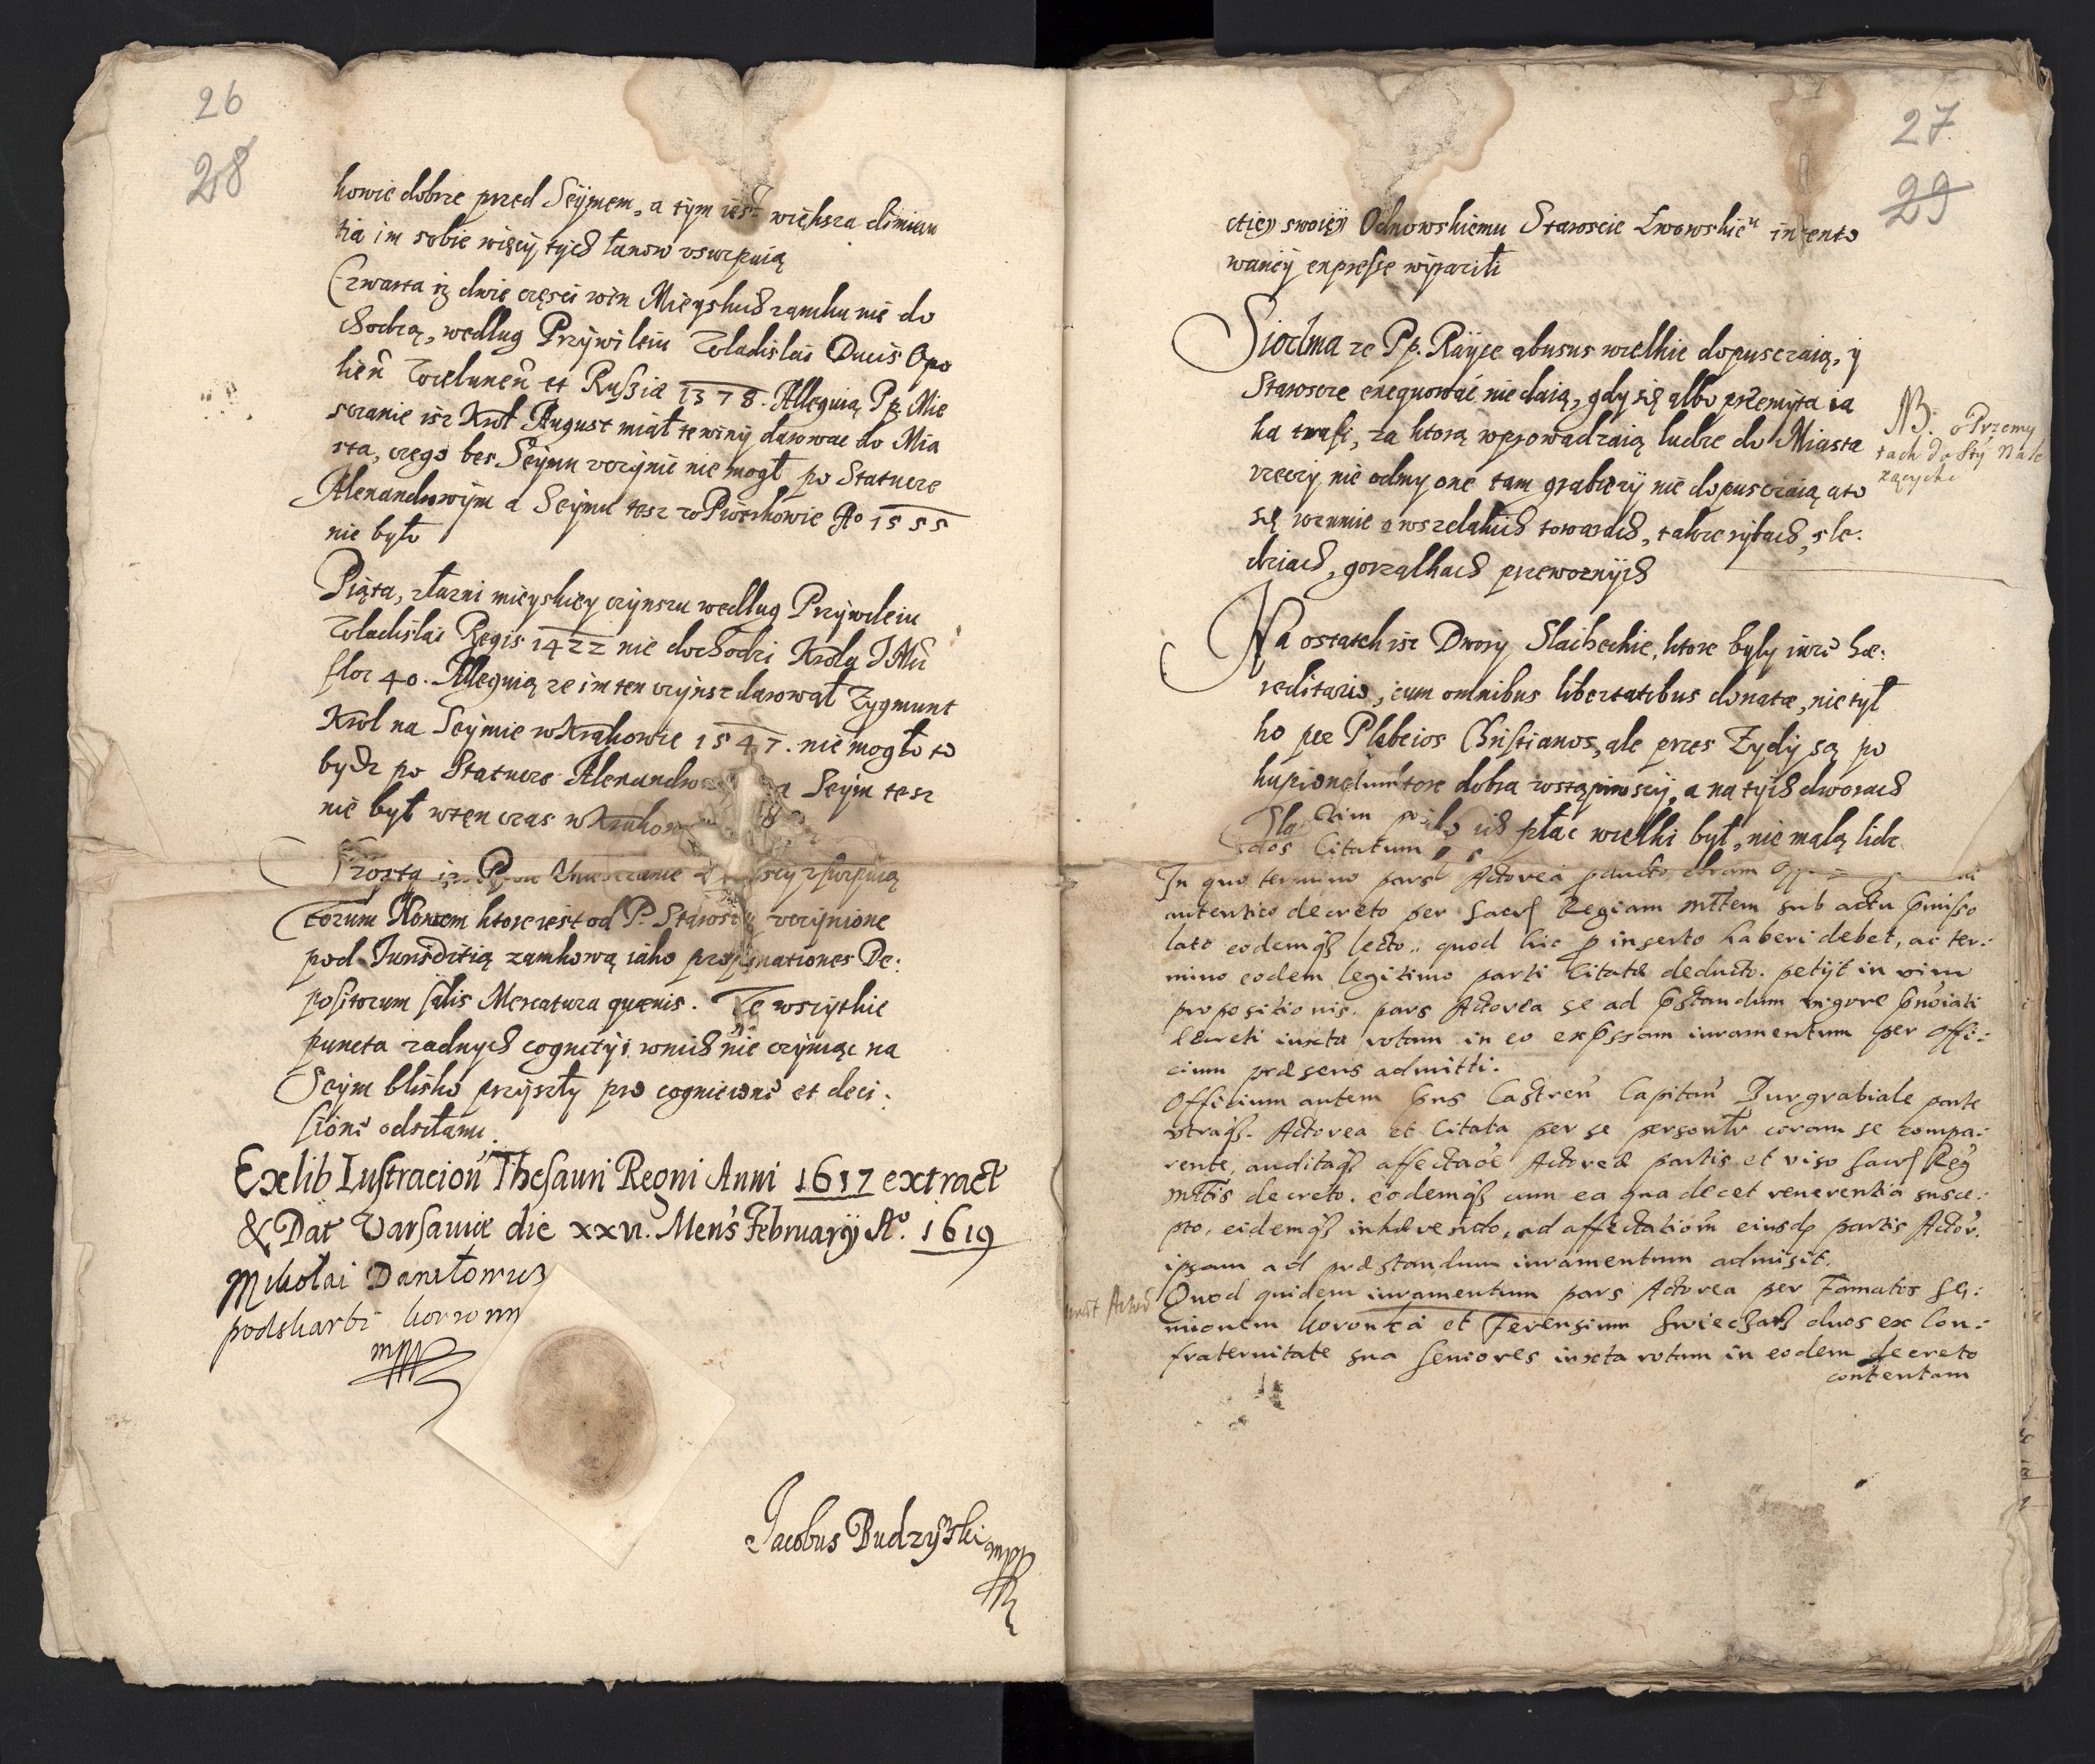 26
28
kowie dobrze przed Seÿmem, a tym iest większa diminu
tia im sobie więcÿ tych łanow vsurpuią
Czwarta iż dwie częsci win Mieyskich zamku nie do
chodzą, według Przÿwileiu Wladislai Ducis Opo
lien̄ Wielunen̄ et Rusziæ 1378. Alleguią Pp. Mie
sczanie isz Krol August miał te winÿ darowac do Mia
sta, czego bez Seÿmu vczÿnic nie mogł po Statucie
Alexandrowÿm a Seÿmu tesz w Piotrkowie Aᵒ 1555
nie było
Piąta, z łazni mieyskiey czÿnszu według Przÿwileiu
Wladislai Regis 1422 nie dochodzi Krola JMci
flor 40. Alleguią ze im ten czÿnsz darował Zygmunt
Krol na Seÿmie w Krakowie 1547. nie mogło to
bydz po Statucie Alexandro a Seÿm tesz
nie był w ten czas w Krakow
Szosta iż vsurpuią
torum Nowem ktore iest od P. Starosty vczÿnione
pod Iurisdictią zamkową iako propinationes De:
positorum salis Mercatura quævis. Te wszÿtkie
puncta zadnych cognitÿi w nich nie czÿniąc na
Seÿm blisko przÿszłÿ pro cognitione et deci:
sione odsełamÿ.
Ex lib Lustracion̄ Thesauri Regni Anni 1617 extract
& Dat Varsaviæ die xxvi. Mens Februarÿ Aᵒ. 1619
Mikołai Daniłowicz
podskarbi koronnÿ
mpp
Jacobus Budzyński mpp
27
29
ctiey swoiëÿ Odnowskiemu Staroscie Lwowskieᵘ intento
waneÿ expresse wÿrazili
Siodma ze Pp. Raÿce abusus wielkie dopusczaią, ÿ
Starosce exequować nie daią, gdy się albo przemÿta ia
ka trafi, za ktorą wprowadzaią ludzie do Miasta
rzeczÿ nie odmyone tam grabierzÿ nie dopusczaią a to
się rozumie o wszelakich towarach, takze rÿbach, sle:
dziach, gorzalkach przewoznÿch
NB. o Przemy
tach do Sty Nale
zących
Na ostatek isz Dworÿ Slacheckie, ktore byly iure hæ:
reditario, cum omnibus libertatibus donatæ, nie tÿl
ko per Plebeios Christianos, ale przes Zydÿ są po
kupione ktore dobra w stąpiwscÿ, a na tÿch dworach
płac wielki był, nie małą licz
Citatum
In quo termino pars Actorea
autentico decreto per Sacrę Regiam mttem sub actu p̄misso
lato eodemq̨ lecto.. quod hic p inserto haberi debet, ac ter:
mino eodem legitimo parti Citatæ deducto. petÿt in vim
propositionis. pars Actorea se ad p̄standum vigore p̄nōiati
decreti iuxta rotam in eo exp̄ssam iuramentum per Offi:
cium præsens admitti.
Officium autem p̄ns Castren̄ Capitan̄ Burgrabiale parte
utraq̨. Actorea et Citata per se personl̄r coram se compa:
rente, auditaq̨ affectaōe Actoreæ partis et viso Sacrę Reg̃
mttis decreto. eodemq̨ cum ea qua decet reverentia susce:
pto, eidemq̨ inhærendo, ad affectationē eiusdē partis Actor.
ipsam ad præstandum iuramentum admisit.
Quod quidem iuramentum pars Actorea per Famatos Se:
mionem Korunka et Terensium Swieczars duos ex Con:
fraternitate sua Seniores iuxta rotam in eodem decreto
contentam